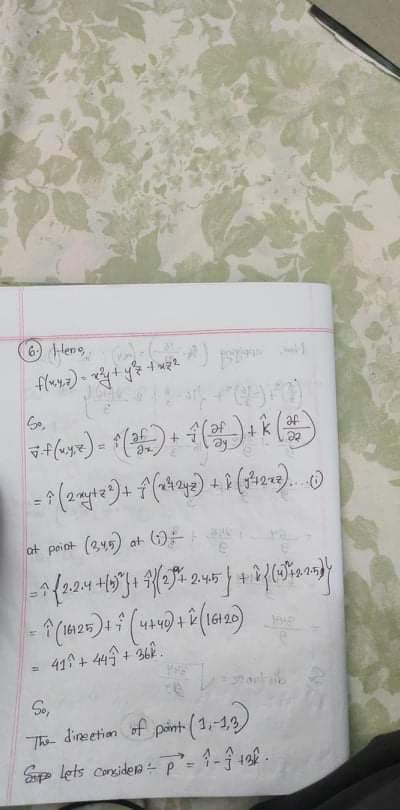 6. Here,
f(x,y,z) = x²y + y²z + xz²
So,
∇f(x,y,z) = î(∂f/∂x) + ĵ(∂f/∂y) + k̂(∂f/∂z)
= î(2xy+z²) + ĵ(x²+2yz) + k̂(y²+2xz)....(i)
at point (2,4,5) at (i)
= î{2.2.4 + (5)²} + ĵ{(2)² + 2.4.5} + k̂{(4)² + 2.2.5}
= î(16+25) + ĵ(4+40) + k̂(16+20)
= 41î + 44ĵ + 36k̂.
So,
The direction of point (1,-1,3)
Lets consider :- p⃗ = î - ĵ + 3k̂.